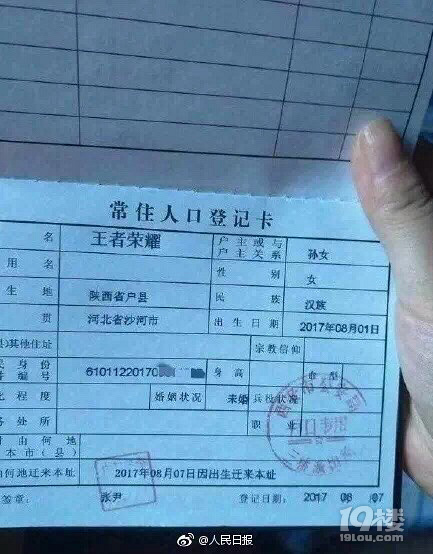 常住人口登记卡
名 王者荣耀 户主或与户主关系 孙女
用名 性别 女
生地 陕西省户县 民族 汉族
贯 河北省沙河市 出生日期 2017年08月01日
其他住址 宗教信仰
身份
编号 6101122017 身高
程度 婚姻状况 未婚 兵役状况
处所 职业
由何地
本市(县)
何地迁来本址 2017年08月07日因出生迁来本址
签章: 张尹 登记日期: 2017 08 07
19楼
19lou.com
@人民日报